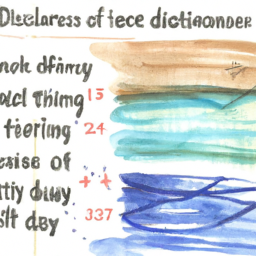 Dlselaress of tece dictiaonoer
nok dfiniy
oacl Thing 15
feoring 24
esise of
tty duwy ++
slt day 337